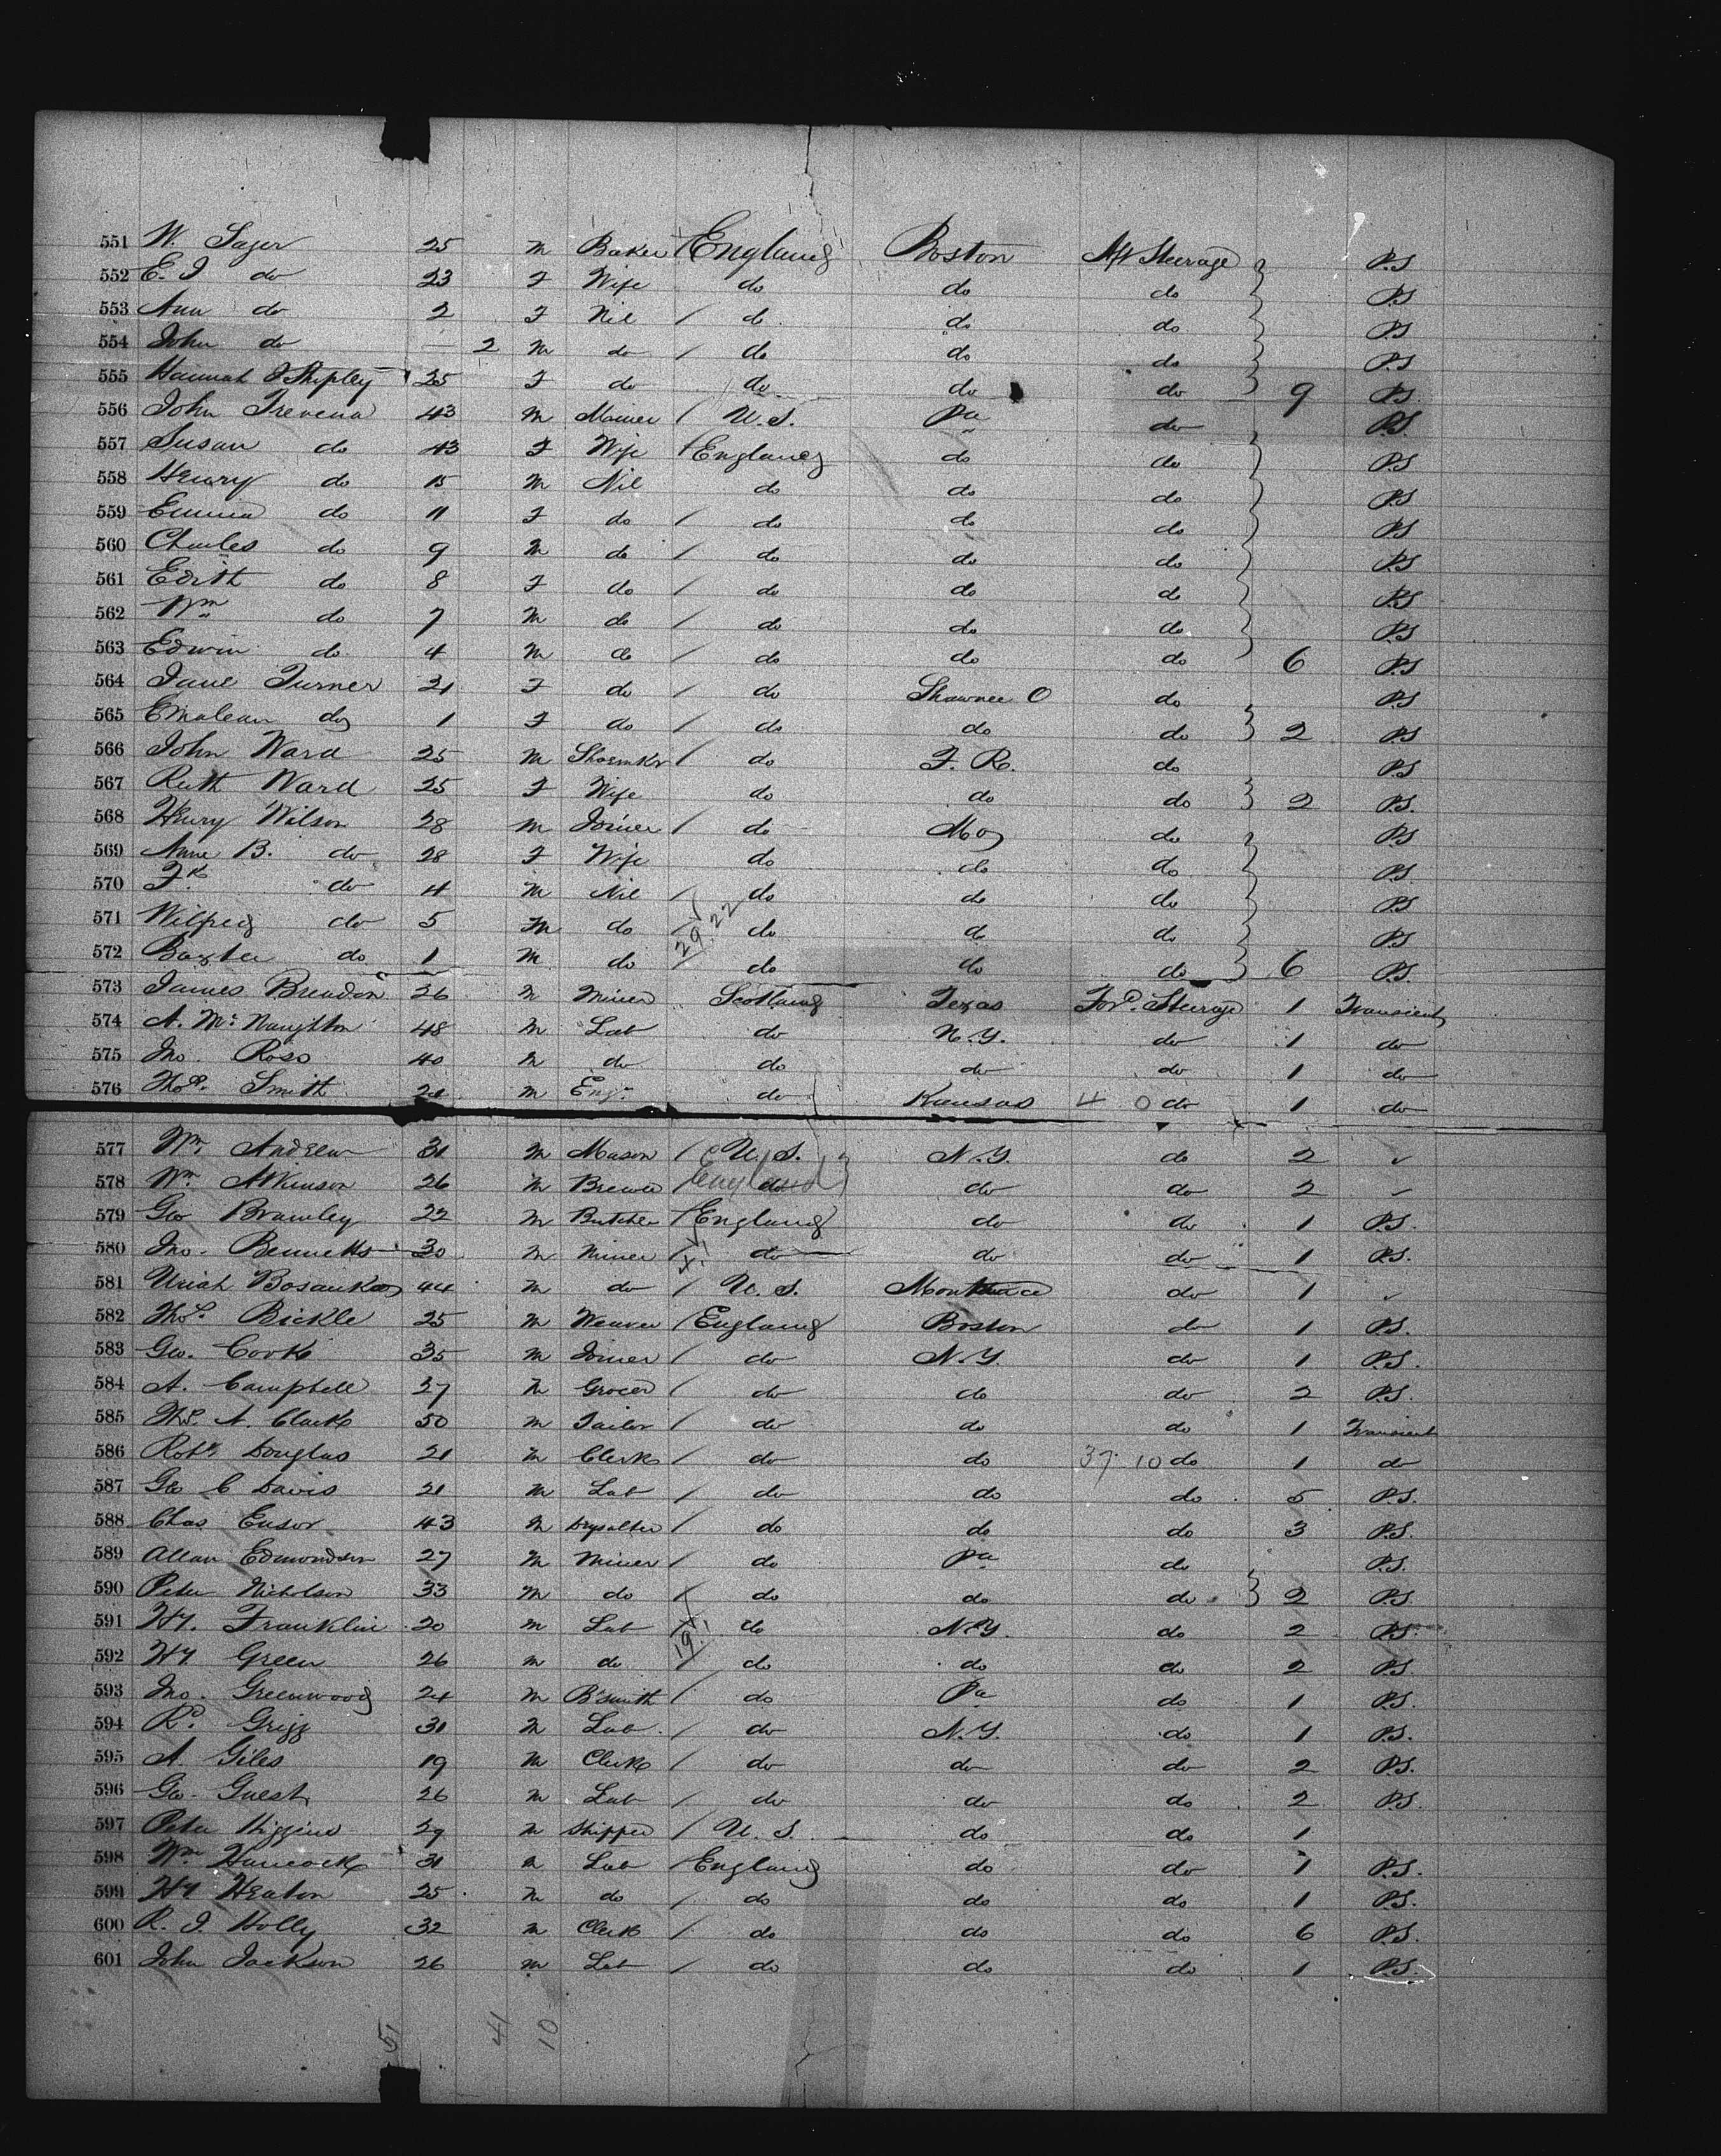 551 W. Sager 25 M Baker / England Boston Aft Steerage P.S
552 E. J do 23 F Wife do do do } P.S
553 Ann do 2 F Nil / do do do } P.S
554 John do — 2 M do / do do do } P.S
555 Hannah J Shipley 25 F do / do do do } 9 P.S
556 John Trevena 43 M Miner / U.S. Pa do P.S.
557 Susan do 43 F Wife / England do do } P.S
558 Henry do 15 M Nil do do do } P.S
559 Emma do 11 F do / do do do } P.S
560 Charles do 9 M do / do do do } P.S
561 Edith do 8 F do / do do do } P.S
562 Wm do 7 M do / do do do } P.S
563 Edwin do 4 M do / do do do 6 P.S
564 Jane Turner 21 F do / do Shawnee O do P.S
565 Emalean do 1 F do / do do do } 2 P.S
566 John Ward 25 M Shoemkr / do F. R. do P.S
567 Ruth Ward 25 F Wife do do do } 2 P.S.
568 Henry Wilson 28 M Joiner / do Mo do } P.S
569 Anne B. do 28 F Wife do do do } P.S
570 Fk do 4 M Nil / do do do } P.S
571 Wilfred do 5 M do / 29 22 do do do } P.S
572 Baxter do 1 M do / do do do } 6 P.S.
573 James Breadon 26 M Miner Scotland Texas Ford. Steerage 1 Transient
574 A. McNaughton 48 M Lab do N.Y. do 1 do
575 Jno. Ross 40 M do do do do 1 do
576 Thos. Smith 21 M Engr do Kansas 4 0 do 1 do
577 Wm. Andrew 31 M Mason / U.S. N.Y. do 2 ✓
578 Wm Atkinson 26 M Brewer / England do do do 2 ✓
579 Geo Bramley 22 M Butcher / England do do 1 P.S.
580 Jno. Bennetts 30 M Miner / do do do 1 P.S.
581 Uriah Bosanko 44 M do / U.S. Mont do 1 ✓
582 Thos. Bickle 25 M Weaver / England Boston do 1 P.S.
583 Geo. Cook 35 M Joiner / do N.Y. do 1 P.S.
584 A. Campbell 27 M Grocer / do do do 2 P.S.
585 Ths. A. Clark 50 M Tailor / do do do 1 Transient
586 Robt. Douglas 21 M Clerk / do do 37 10 do 1 do
587 Geo C Davis 21 M Lab / do do do 5 P.S.
588 Chas Ensor 43 M Drysalter / do do do 3 P.S.
589 Allan Edmondson 27 M Miner / do Pa do P.S.
590 Peter Nicholson 33 M do / do do do } 2 P.S
591 Hy. Franklin 20 M Lab / 19 do N.Y. do 2 P.S.
592 Hy Green 26 M do / do do do 2 P.S
593 Jno. Greenwood 24 M B'smith / do Pa do 1 P.S.
594 Rd. Grigg 31 M Lab. / do N.Y. do 1 P.S.
595 A Giles 19 M Clerk / do do do 2 P.S.
596 Geo. Guest 26 M Lab / do do do 2 P.S.
597 Peter Higgins 29 M Shipper / U.S. do do 1
598 Wm Hancock 31 M Lab / England do do 1 P.S.
599 Hy Heaton 25 M do / do do do 1 P.S.
600 R. J. Holly 32 M Clerk / do do do 6 P.S.
601 John Jackson 26 M Lab / do do do 1 P.S.
51 41 10